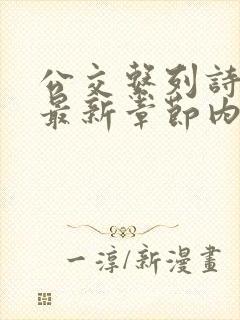 公交系列詩
最新章節內
一淳/新漫畫